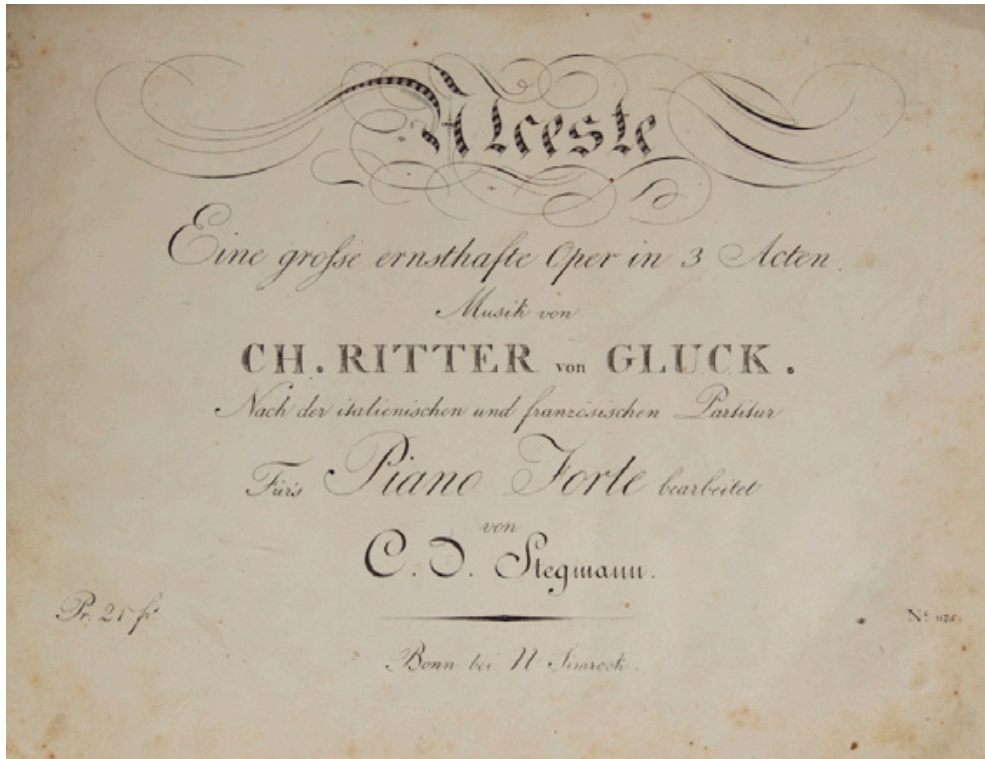 Alceste
Eine grosse ernsthafte Oper in 3 Acten.
Musik von
CH. RITTER von GLUCK.
Nach der italienischen und französischen Partitur
Für's Piano Forte bearbeitet
von
C. D. Stegmann.
Pr. 21 fs
Bonn bei N Simrock.